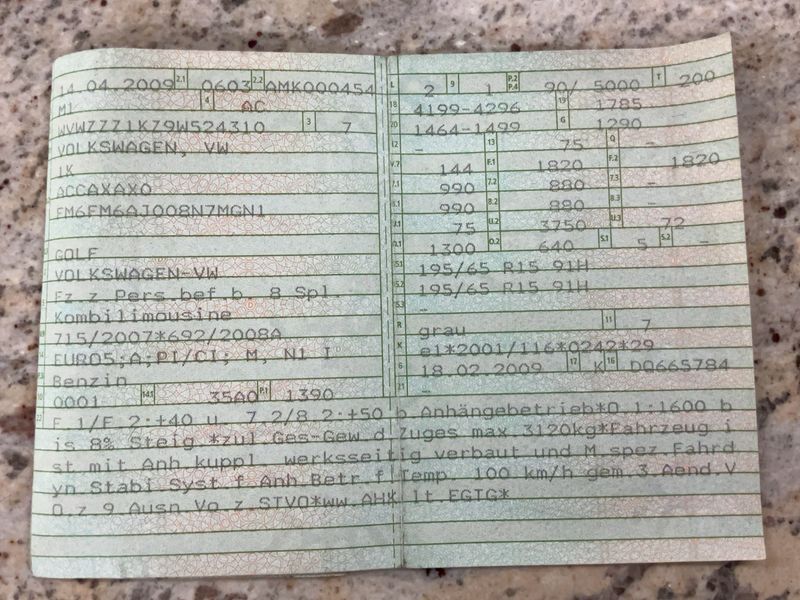 14.04.2009 2.1 0603 2.2 AMK000454
M1 4 AC
WVWZZZ1KZ9W524310 3 7
VOLKSWAGEN, VW
1K
ACCAXAX0
FM6FM6AJ008N7MGN1
GOLF
VOLKSWAGEN-VW
Fz.z.Pers.bef.b. 8 Spl.
Kombilimousine
715/2007*692/2008A
EURO5;A;PI/CI; M, N1 I
Benzin
0001 14.1 35A0 P.1 1390
L 2 9 1 P.2 P.4 90/ 5000 T 200
18 4199-4296 19 1785
20 1464-1499 G 1290
12 - 13 75 Q -
V.7 144 F.1 1820 F.2 1820
7.1 990 7.2 880 7.3 -
8.1 990 8.2 880 8.3 -
U.1 75 U.2 3750 U.3 72
O.1 1300 O.2 640 S.1 5 S.2 -
15.1 195/65 R15 91H
15.2 195/65 R15 91H
15.3 -
R grau 11 7
K e1*2001/116*0242*29
6 18.02.2009 17 K 16 DQ665784
21 -
22 F.1/F.2:+40 u. 7.2/8.2:+50 b.Anhängebetrieb*O.1:1600 b
is 8% Steig.*zul.Ges-Gew.d.Zuges max.3120kg*Fahrzeug i
st mit Anh.kuppl. werksseitig verbaut und M.spez.Fahrd
yn.Stabi.Syst.f.Anh.Betr.f.Temp. 100 km/h gem.3.Aend.V
O.z.9.Ausn.Vo.z.STVO*ww.AHK lt.EGTG*